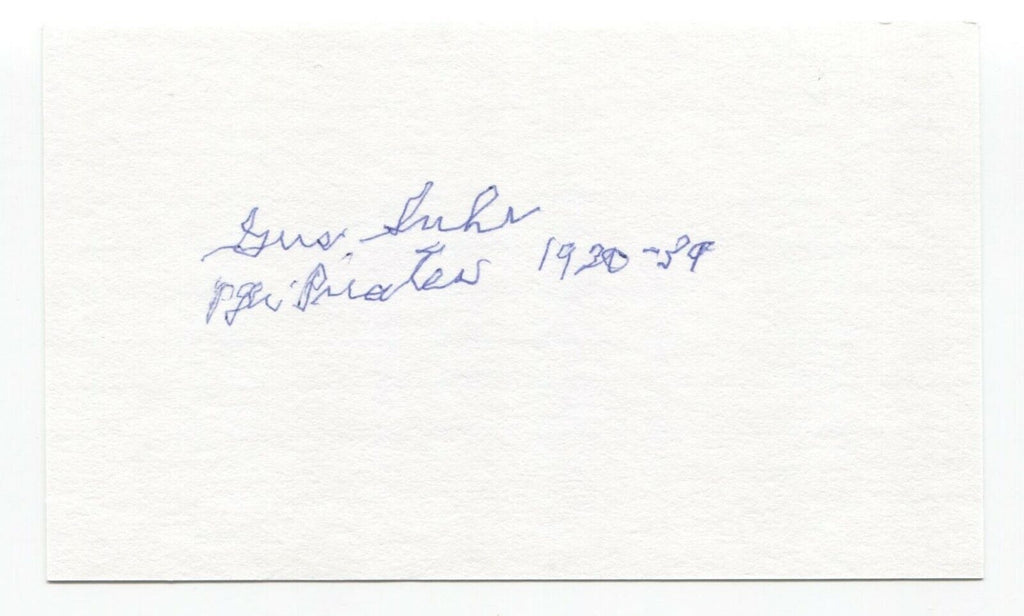 Gus Suhr
Pgh Pirates 1930-39